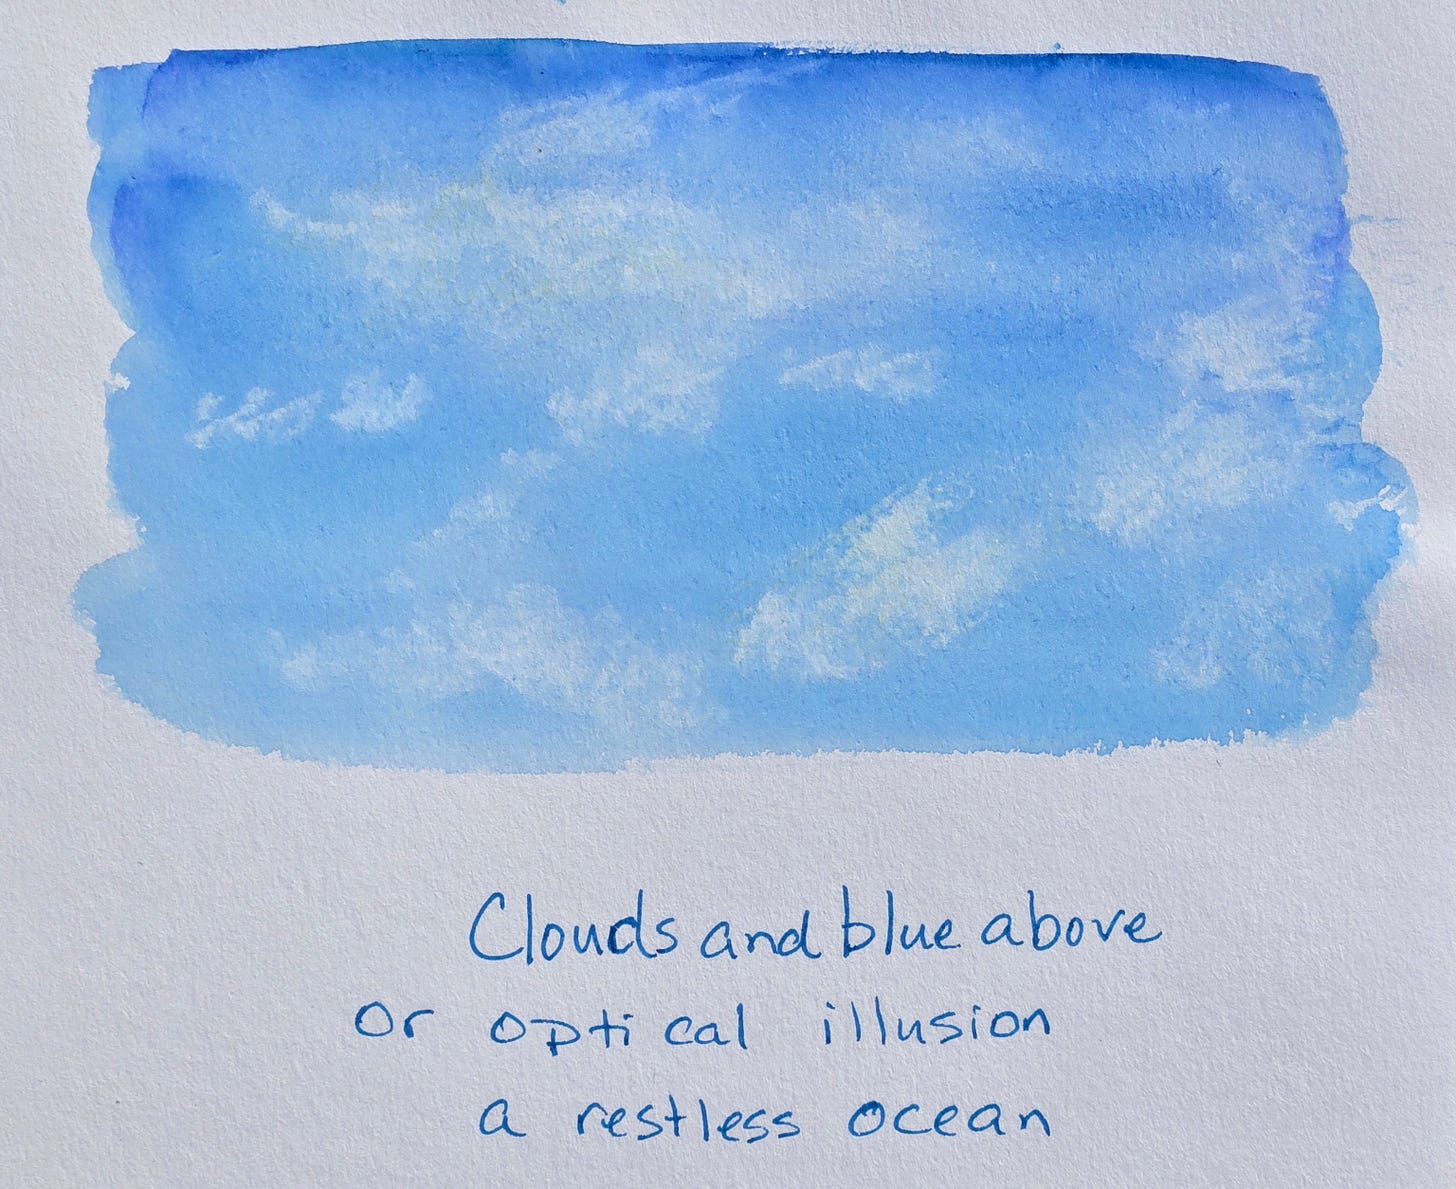 Clouds and blue above
or optical illusion
a restless ocean